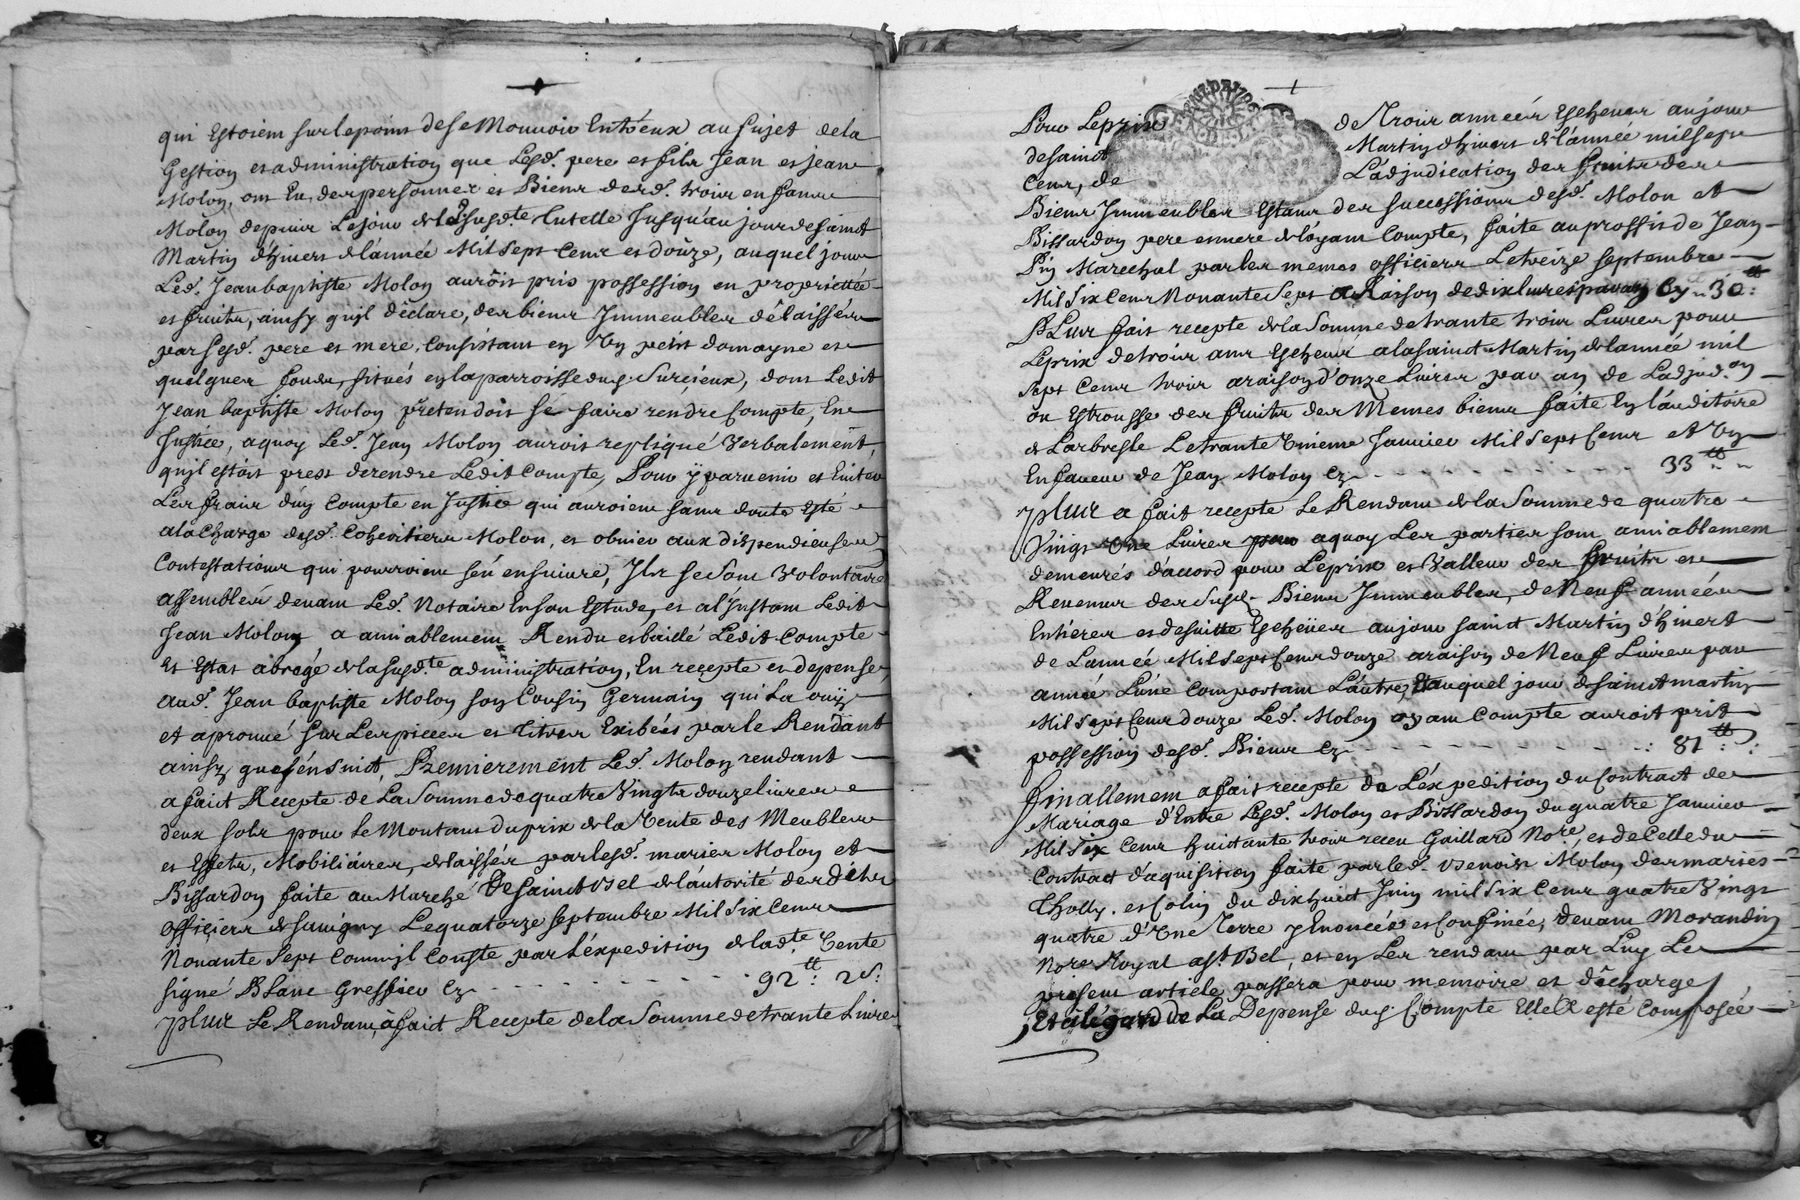 qui Estoient sur le point de se Mouuoir Entr'eux au sujet de la
Gestion et administration que Lesd. pere et fils Jean et Jean
Molon, ont Eu des personnes et Biens desd. trois enfans
Molon depuis Le jour de la susd.te tutelle Jusqu'au jour de saint
Martin d'hiuers de l'année Mil sept Cent et douze, auquel jour
Led. Jean baptiste Molon auroit pris possession en proprietté
et fruits, ainsy qu'jl déclare, des biens Jmmeubles délaissés
par sesd. pere et mere, Consistant en Vn petit domayne et
quelques fonds, situés en la parroisse dud. Surcieux, dont Ledit
Jean baptiste Molon prétendoit se faire rendre Compte, En
Justice, a quoy Led. Jean Molon auroit repliqué Verbalement,
qu'jl estoit prest de rendre Ledit Compte, Pour ÿ paruenir et Euiter
Les frais d'un Compte en Justice qui auroient sans doute Esté
a la Charge desd. Cohéritiers Molon, et obuier aux dispendieuses
Contestations qui pourroient s'en ensuiure, Jls se sont Volontaire
assemblés deuant Led. Notaire En son Estude, et a l'Jnstant Ledit
Jean Molon a amiablement Rendu et baillé Ledit Compte
Et Estat abregé de la susd.te administration, En recepte et depense,
aud. Jean baptiste Molon son Cousin Germain qui La ouÿ
et aprouué sur Les pieces et titres Exibées par le Rendant
ainsy que s'en suit, Premierement Led. Molon rendant
a fait Recepte de La Somme de quatre Vingts douze liures
deux sols pour le Montant du prix de la Vente des Meubles
et Effets, Mobiliaires, délaissés par lesd. mariés Molon et
Bissardon faite au Marché de Saint Bel de l'autorité des dits
officiers de sauigny Le quatorze septembre Mil six Cent
Nonante sept Comm'jl Conste par l'éxpedition de lad.te Vente
signé Blanc Greffier Cy - - - - - - - - 92 ₶: 2 s:
plus Le Rendant, a fait Recepte de la Somme de trante Liures
Pour Le prix de Trois années Escheues au jour
de saint Martin d'hiuers de l'année mil sept
Cent, de L'adjudication des fruits des
Biens Jmmeubles Estant des successions desd. Molon et
Bissardon pere et mere de l'oyant Compte, faite au proffit de Jean
Pin Marechal par les memes officiers Le treize septembre
Mil six Cent Nonante Sept a Raison de dix liures par an Cy - 30 ₶:
Plus fait recepte de la Somme de trante trois Liures pour
Le prix de trois ans Escheus a la saint Martin de l'année mil
sept Cent trois a raison d'onze Liures par an de L'adjud.on
ou Estrousse des fruits des Memes biens faite En l'auditoire
de Larbresle Le trante Vnieme Januier Mil Sept Cent et Vn
En faueur de Jean Molon Cy - - - - - - 33 ₶:
plus a fait recepte Le Rendant de la Somme de quatre
Vingt Vne Liures a quoy Les parties sont amiablement
demeurés d'accord pour Le prix et Valleur des fruits et
Reuenus des susd. Biens Jmmeubles, de Neuf années
Entieres et de suitte Escheües au jour saint Martin d'hiuert
de L'année Mil Sept Cent douze a raison de Neuf Liures par
année L'une Comportant L'autre, Et auquel jour de saint martin
Mil Sept Cent douze Led. Molon oyant Compte auroit prit
possession desd. Biens Cy - - - - - - - - - 81 ₶:
finallement a fait recepte de L'éxpedition du Contract de
Mariage d'Entre Lesd. Molon et Bissardon du quatre Januier
Mil Six Cent huictante trois receu Gaillard No.re, et de Celle du
Contract d'aquisition faite par led. Benoist Molon des mariés
Tholly. et Colin du dix huict Juin mil six Cent quatre Vingt
quatre d'Vne Terre y Enoncée et Confinée, deuant Morandin
No.re Royal a St. Bel, et en Les rendant par Luy Le
présent article passera pour memoire et décharge
Et al'égard de La Depense dud. Compte Elle a esté Composée